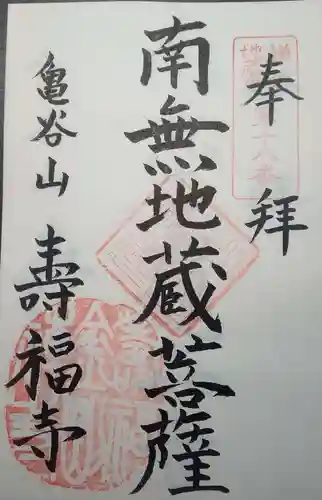 奉拝
南無地蔵菩薩
亀谷山
寿福寺